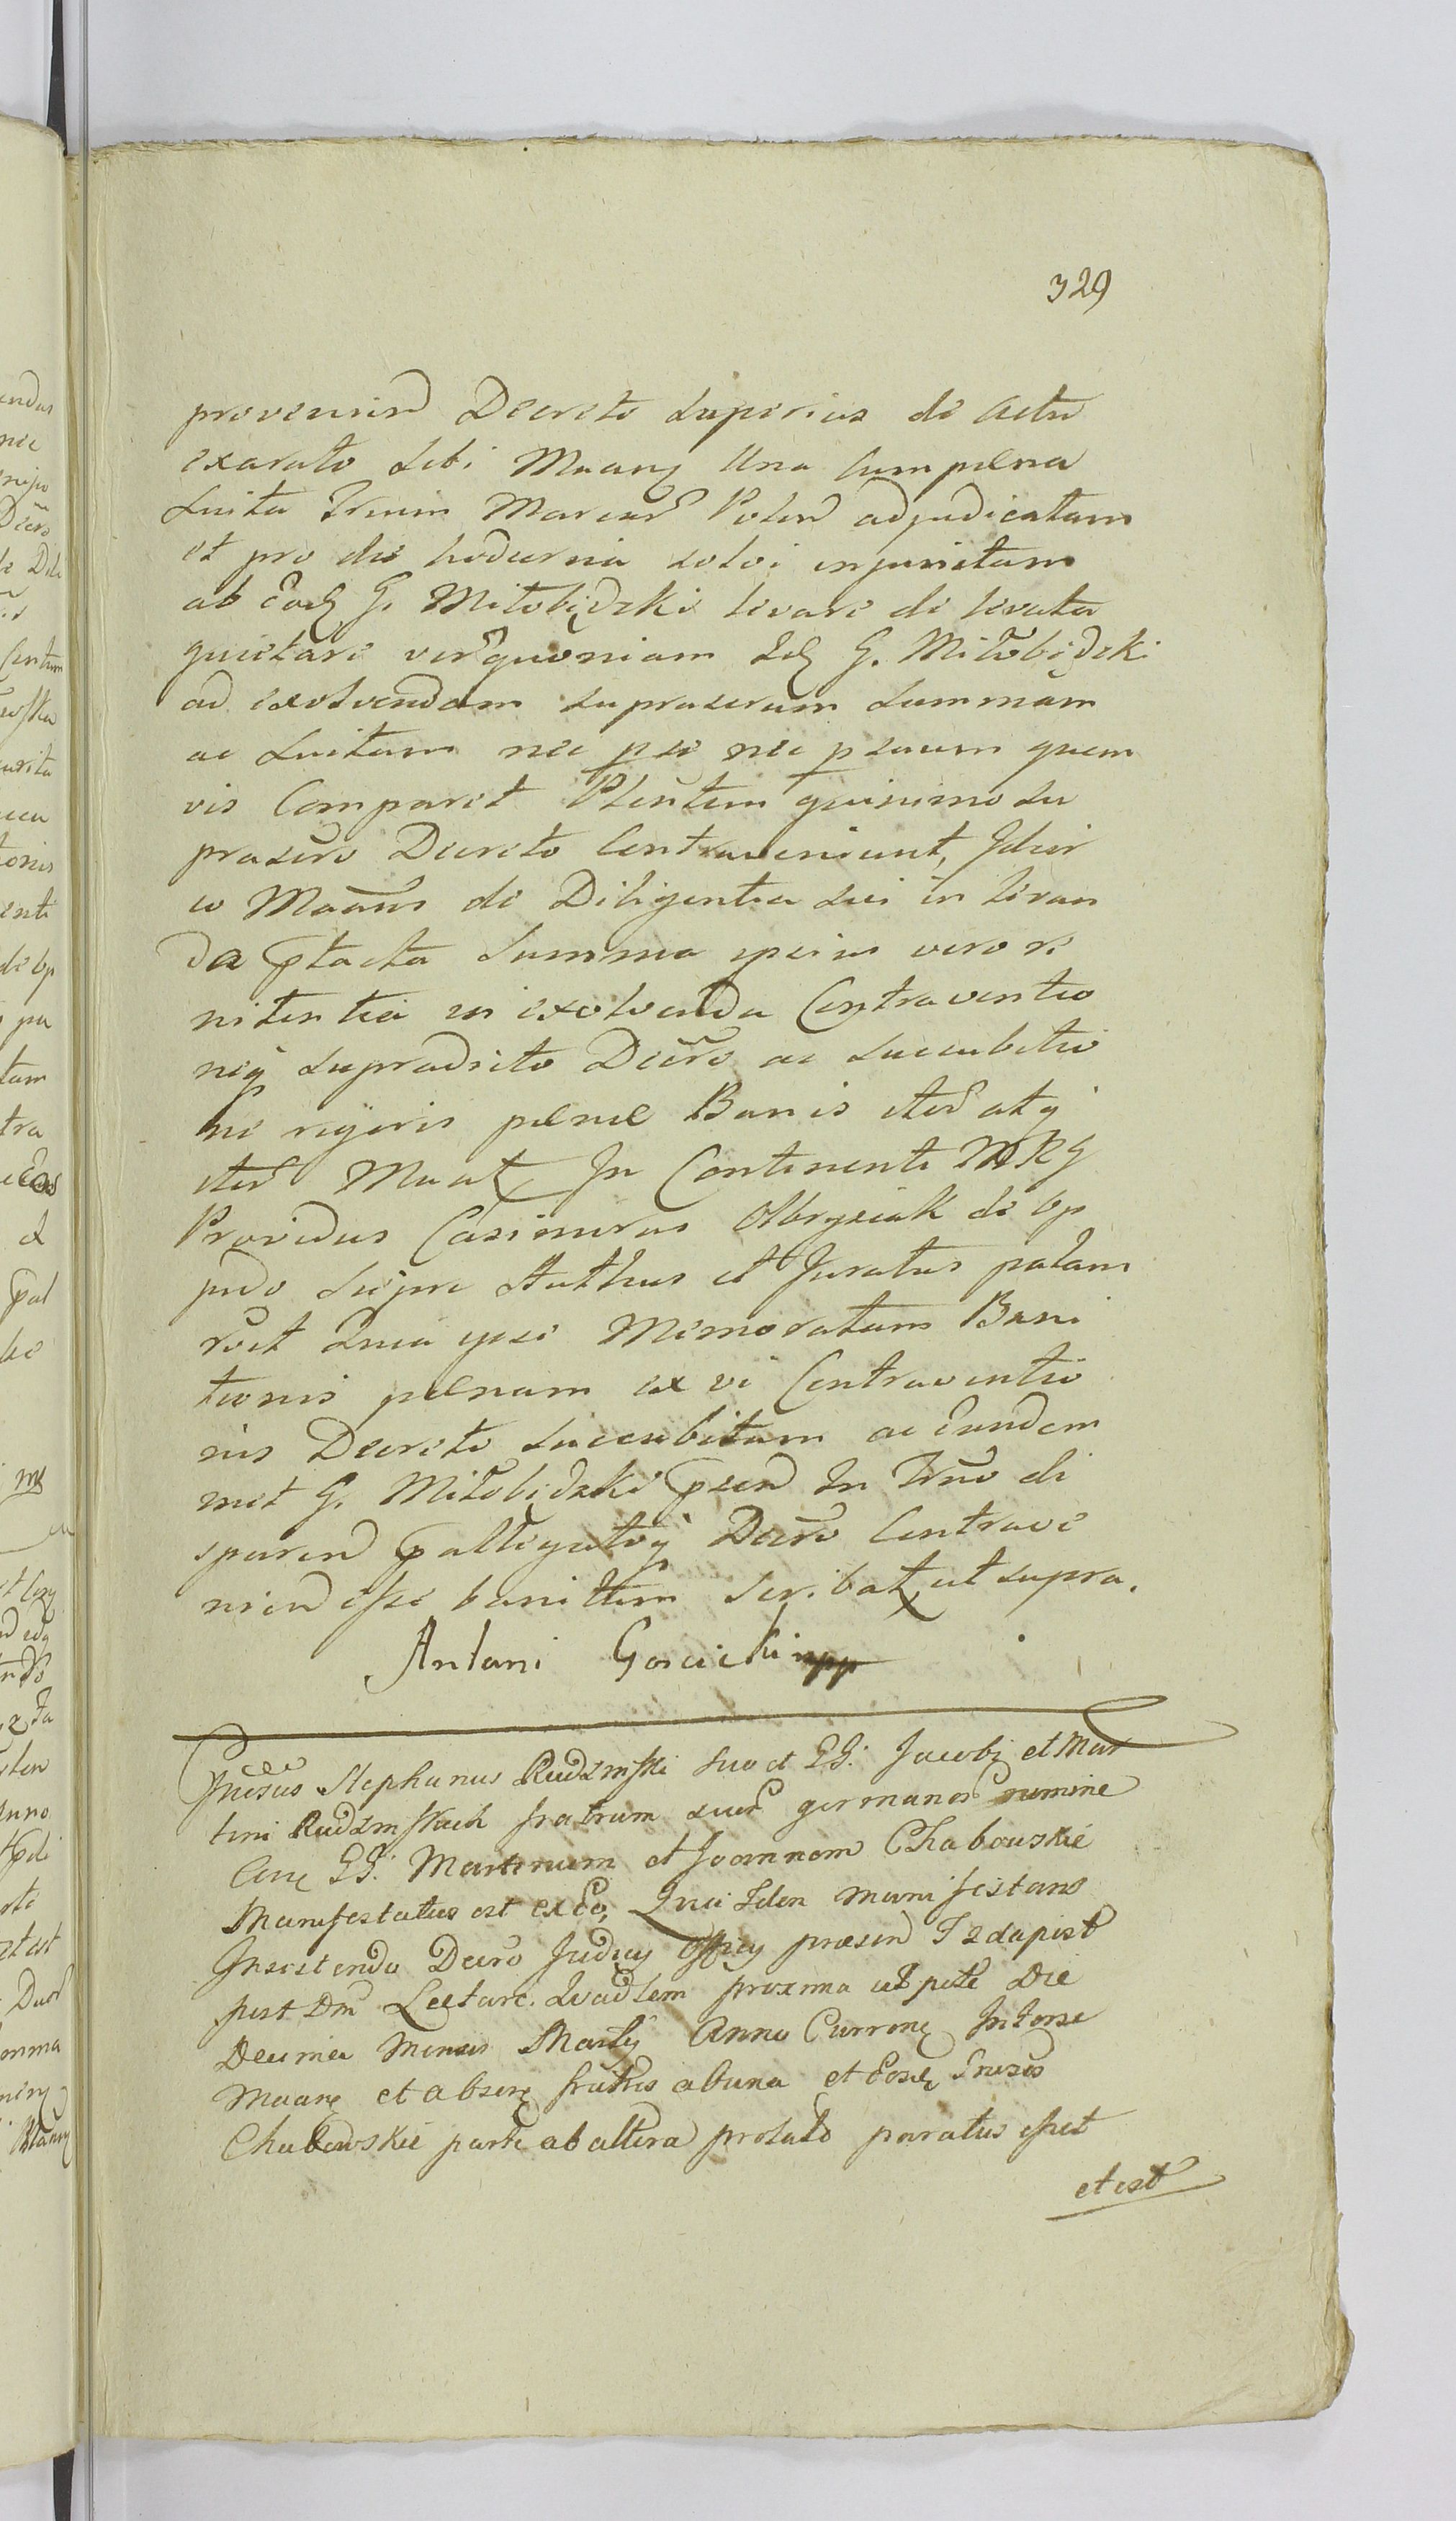 329
proveniend Decreto superius de Actu
exarato sibi Maang una cum pæna
Luita Trium Marcar Polon adjudicatam
et pro die hodierna solvi injunctam
ab Eod G. Miłobędzki levare de levata
quietare ver quoniam Id G. Miłobędzki
ad exolvendam suprascram summam
ac Luitam nec per se nec per suum quem
vis Comparet Plentem quinimo su
prascro Decreto Contraveniunt, Idcir
co Maans de Diligentia sui in levan
da ptacta Summa ipsius vero re
nitentia in exolvenda Contraventio
neq supradicto Decro ac succubitio
ne rigoris pænæ Banis iter atq
iter Maat In Continenti MRg
Providus Casimirus Olbrysiak de Op
pido Suique Authus et Juratus palam
rvit Quia ipse Memoratam Bani
tionis pænam ex vi Contraventio
nis Decreto succubitam ac Eundem
met G. Miłobędzki psend In Trno di
sparend palligatoq Decro Contrave
niend esse banittum scribat, ut supra.
Antoni Goscicki mpp
Gnesus Stephanus Rudzinski suo et GG. Jacobi et Mar
tini Rudzinskich fratrum suor germanor nomine
Cone GG. Martinum et Joannem Chabowskie
Manifestatus est ex Eo, Quia Iden manifestans
Insistendo Decro Judicy Officy præsend
post Dm Laetare Quadlem proxima ut pote Die
Decima Mensis Marty Anno Currone Intorse
Maane et absen fratres ab una et Eosd Gnesos
Chabowskie parte ab altera prolato paratus esset
et est